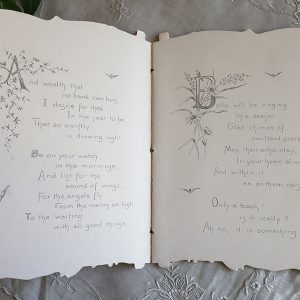 And wealth that
no bank can buy,
I desire for thee
In the year to be,
That so swiftly
is drawing nigh.
Be on your watch
in the mornings,
And list for the
sound of wings,
For the angels fly
From the realms on high
To the "waiting"
with all good things.
Bells will be ringing
this season
Glad chimes of
exultant praise
May their echo stay
In your heart alway
And within it
an anthem raise
Only a book?
is it really?
Ah no, it is something